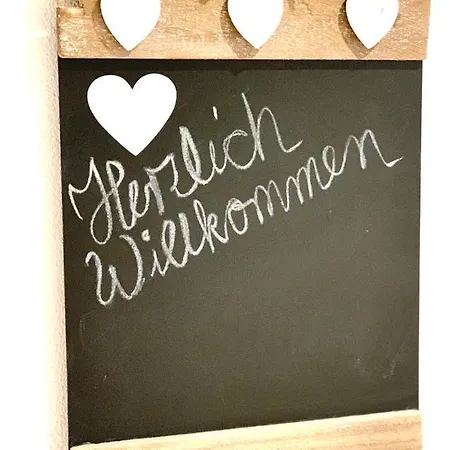 Herzlich
Willkommen